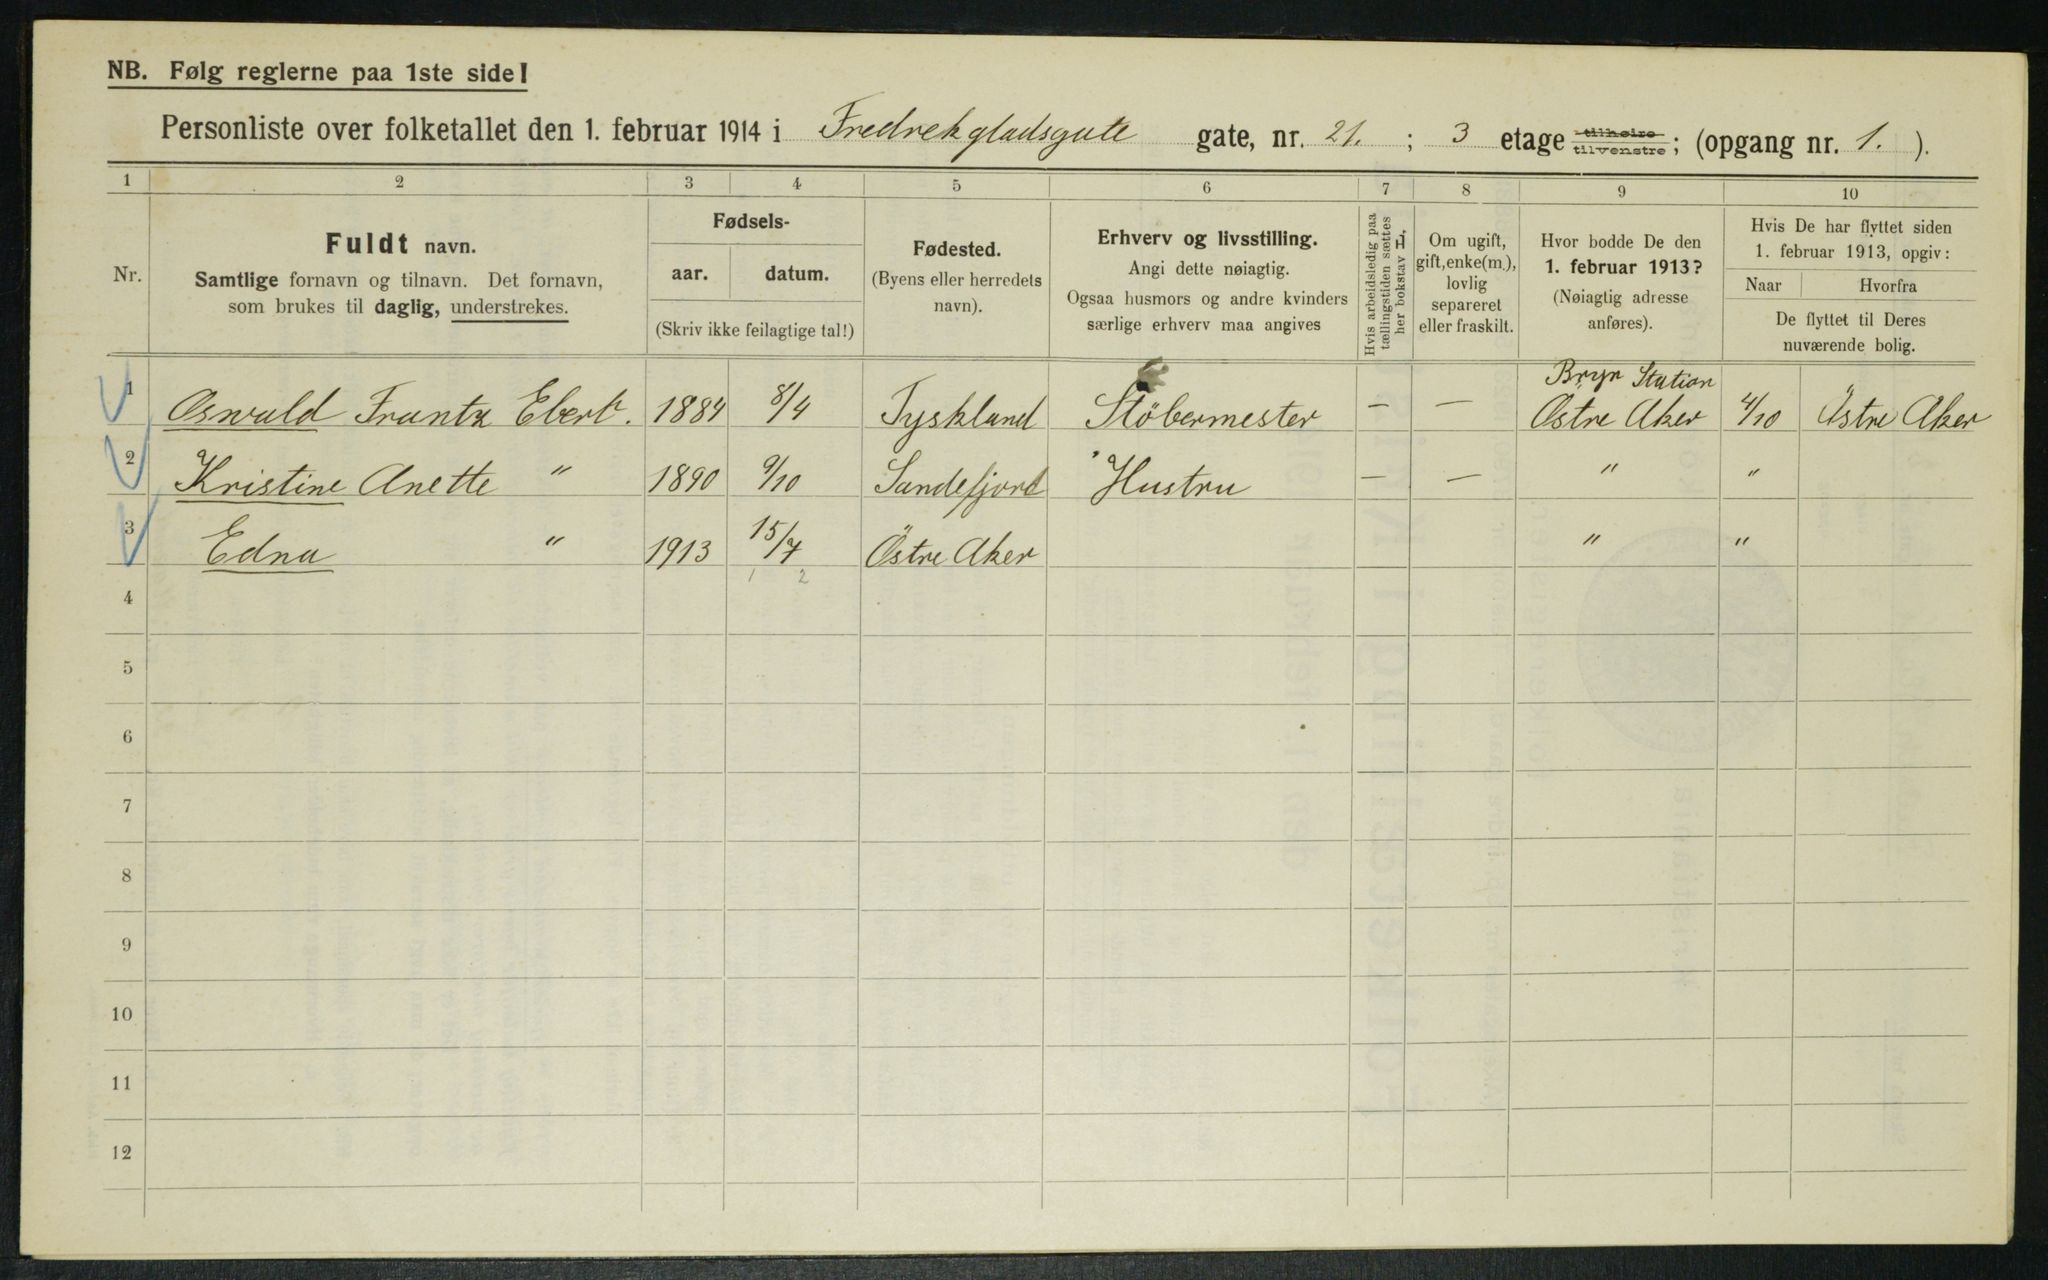 NB. Følg reglerne paa 1ste side!
Personliste over folketallet den 1. februar 1914 i Fredrekgladsgate gate, nr. 21. ; 3 etage tilhøire tilvenstre; (opgang nr. 1. ).
1 2 3 4 5 6 7 8 9 10
Nr.
Fuldt navn.
Samtlige fornavn og tilnavn. Det fornavn,
som brukes til daglig, understrekes.
Fødsels-
aar. datum.
(Skriv ikke feilagtige tal!)
Fødested.
(Byens eller herredets
navn).
Erhverv og livsstilling.
Angi dette nøiagtig.
Ogsaa husmors og andre kvinders
særlige erhverv maa angives
Hvis arbeidsledig paa
tællingstiden sættes
her bokstav L.
Om ugift,
gift, enke(m.),
lovlig
separeret
eller fraskilt.
Hvor bodde De den
1. februar 1913?
(Nøiagtig adresse
anføres).
Hvis De har flyttet siden
1. februar 1913, opgiv:
Naar Hvorfra
De flyttet til Deres
nuværende bolig.
Bryn Station
1 Oswald Frantz Ebert. 1884 8/4 Tyskland Stöbermester — — Østre Aker 4/10 Östre Aker
2 Kristine Anette " 1890 9/10 Sandefjord Hustru — — " "
3 Edna " 1913 15/7 Östre Aker " "
1 2
4
5
6
7
8
9
10
11
12